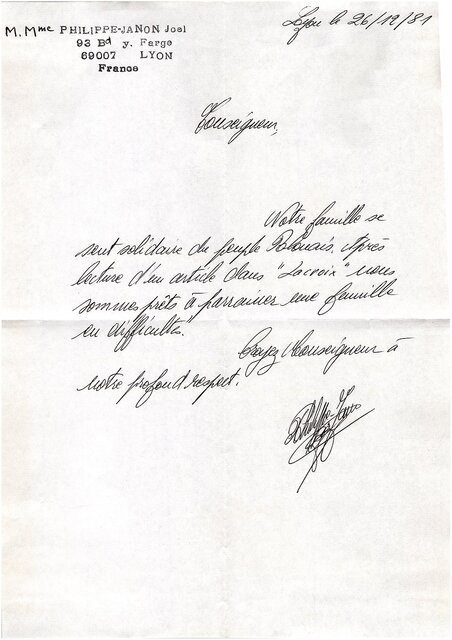 M. Mme PHILIPPE-JANON Joel
93 Bd y. Farge
69007 LYON
France
Lyon le 26/12/81
Monseigneur,
Notre famille se
sent solidaire du peuple Polonais. Après
lecture d'un article dans "Lacroix" nous
sommes prêts à parrainer une famille
en difficultés.
Croyez Monseigneur à
notre profond respect.